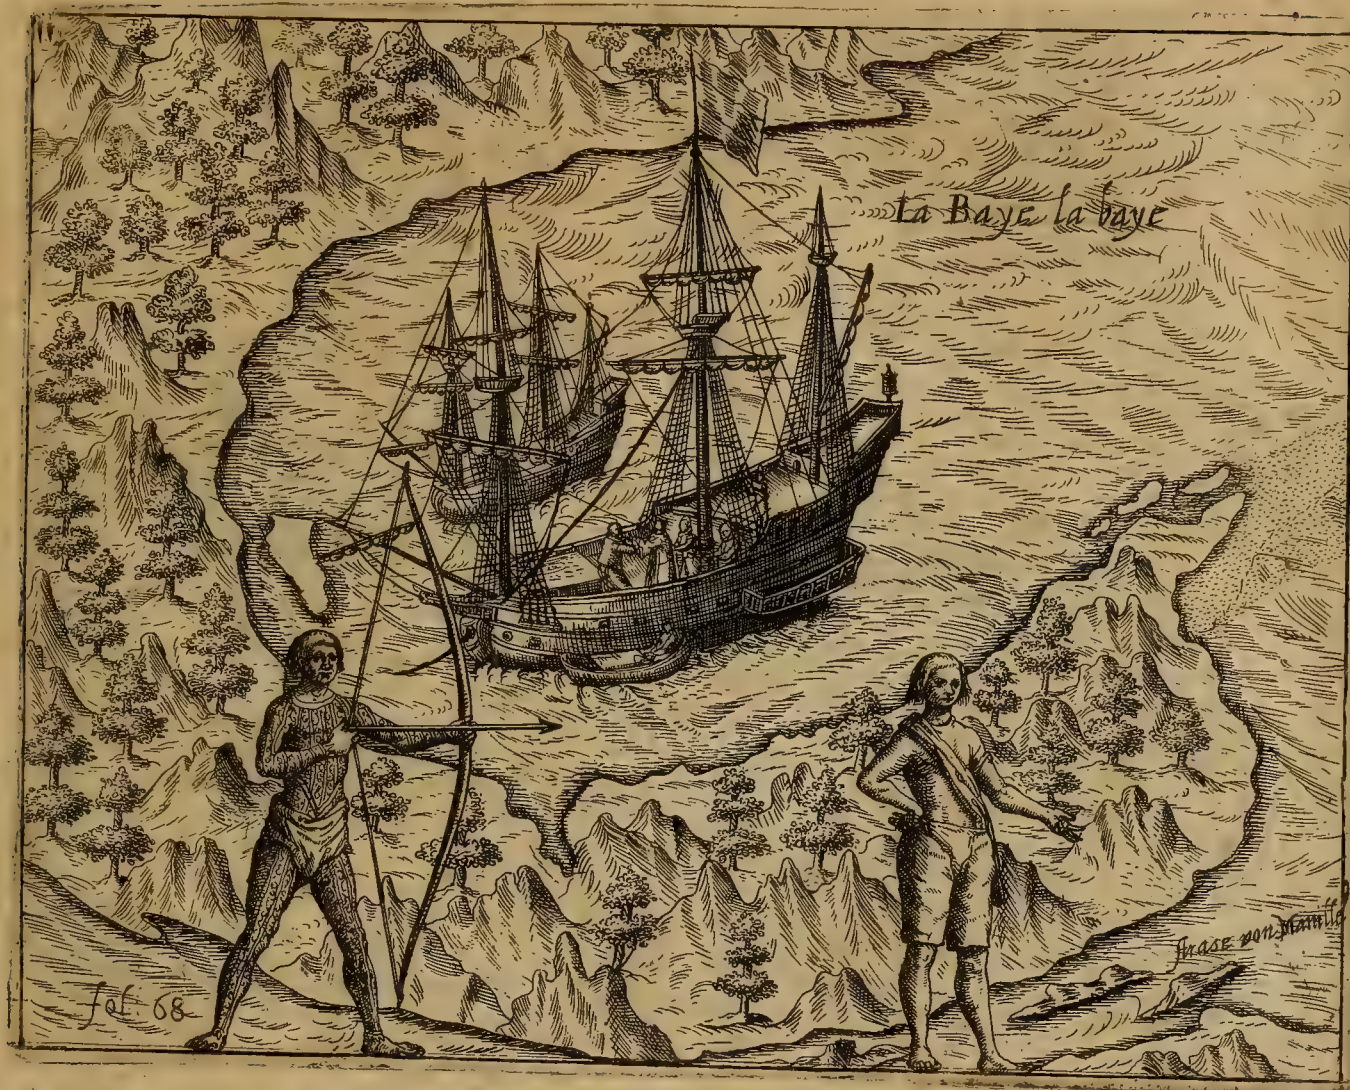 La Baye la baye
strase von Manille
fol. 68